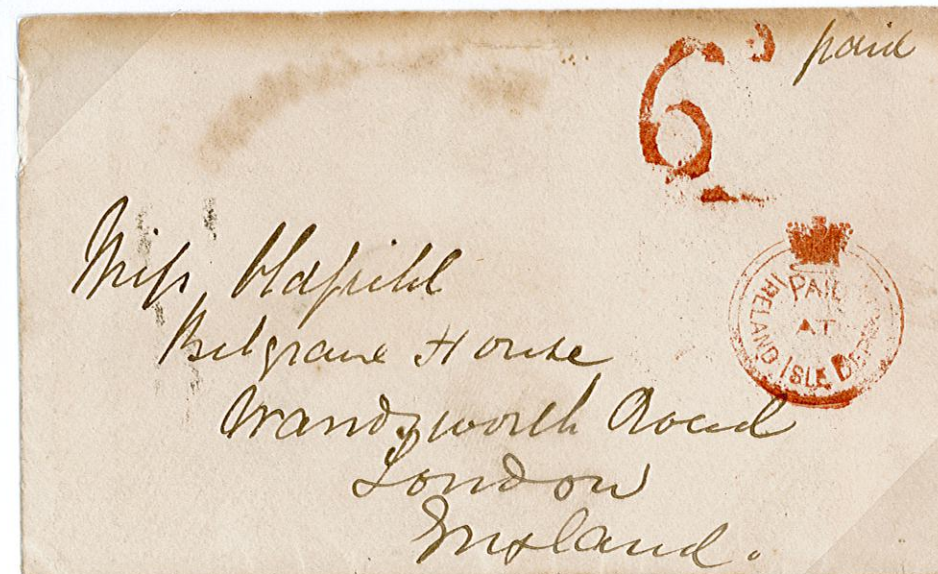 6d paid
PAID
AT
IRELAND ISLE BERMUDA
Miss Oldfield
Belgrave House
Wandsworth Road
London
England.